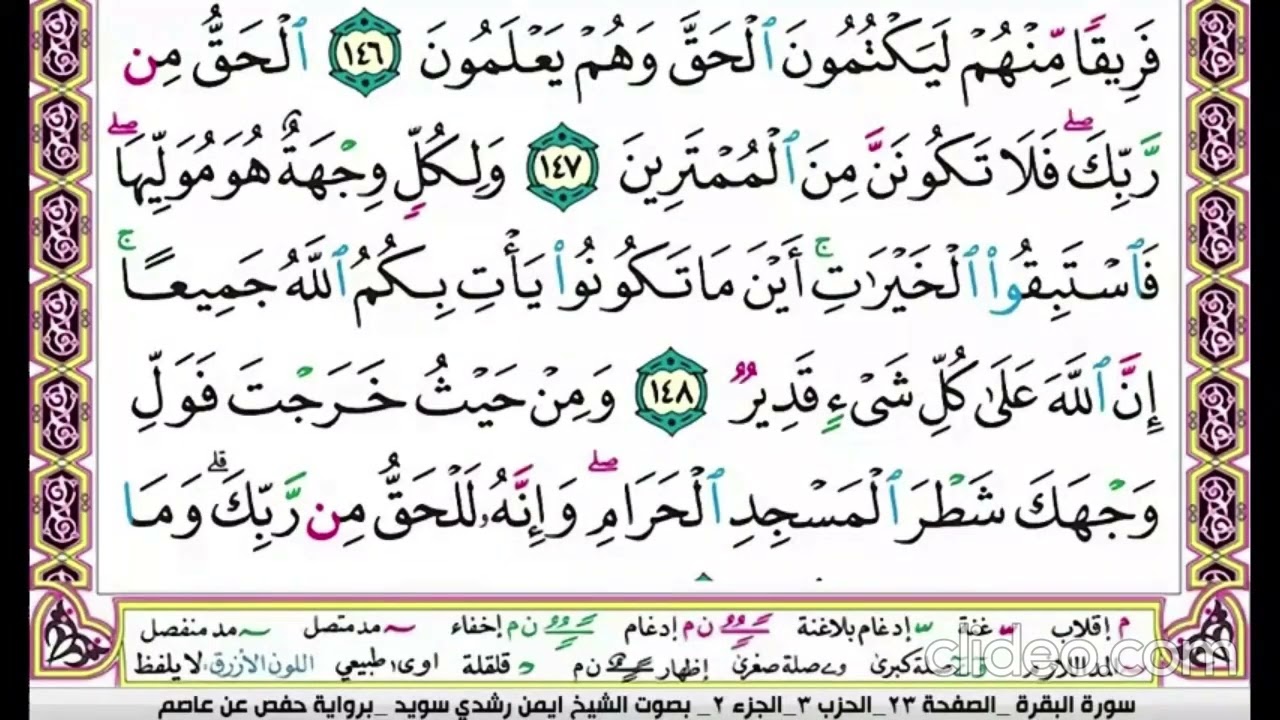 فَرِيقًا مِّنْهُمْ لَيَكْتُمُونَ ٱلْحَقَّ وَهُمْ يَعْلَمُونَ ١٤٦ ٱلْحَقُّ مِن
رَّبِّكَ ۖ فَلَا تَكُونَنَّ مِنَ ٱلْمُمْتَرِينَ ١٤٧ وَلِكُلٍّ وِجْهَةٌ هُوَ مُوَلِّيهَا ۖ
فَٱسْتَبِقُوا۟ ٱلْخَيْرَٰتِ ۚ أَيْنَ مَا تَكُونُوا۟ يَأْتِ بِكُمُ ٱللَّهُ جَمِيعًا ۚ
إِنَّ ٱللَّهَ عَلَىٰ كُلِّ شَىْءٍ قَدِيرٌ ١٤٨ وَمِنْ حَيْثُ خَرَجْتَ فَوَلِّ
وَجْهَكَ شَطْرَ ٱلْمَسْجِدِ ٱلْحَرَامِ ۖ وَإِنَّهُۥ لَلْحَقُّ مِن رَّبِّكَ ۗ وَمَا
م إقلاب غنة إدغام بلاغنة ن م إدغام ن م إخفاء مد متصل مد منفصل
المد اللازم صلة كبرى وے صلة صغرى إظهار ن م قلقلة اوى طبيعي اللون الأزرق لا يلفظ
clideo.com
سورة البقرة _الصفحة ٢٣_الحزب ٣_الجزء ٢_ بصوت الشيخ ايمن رشدي سويد _برواية حفص عن عاصم